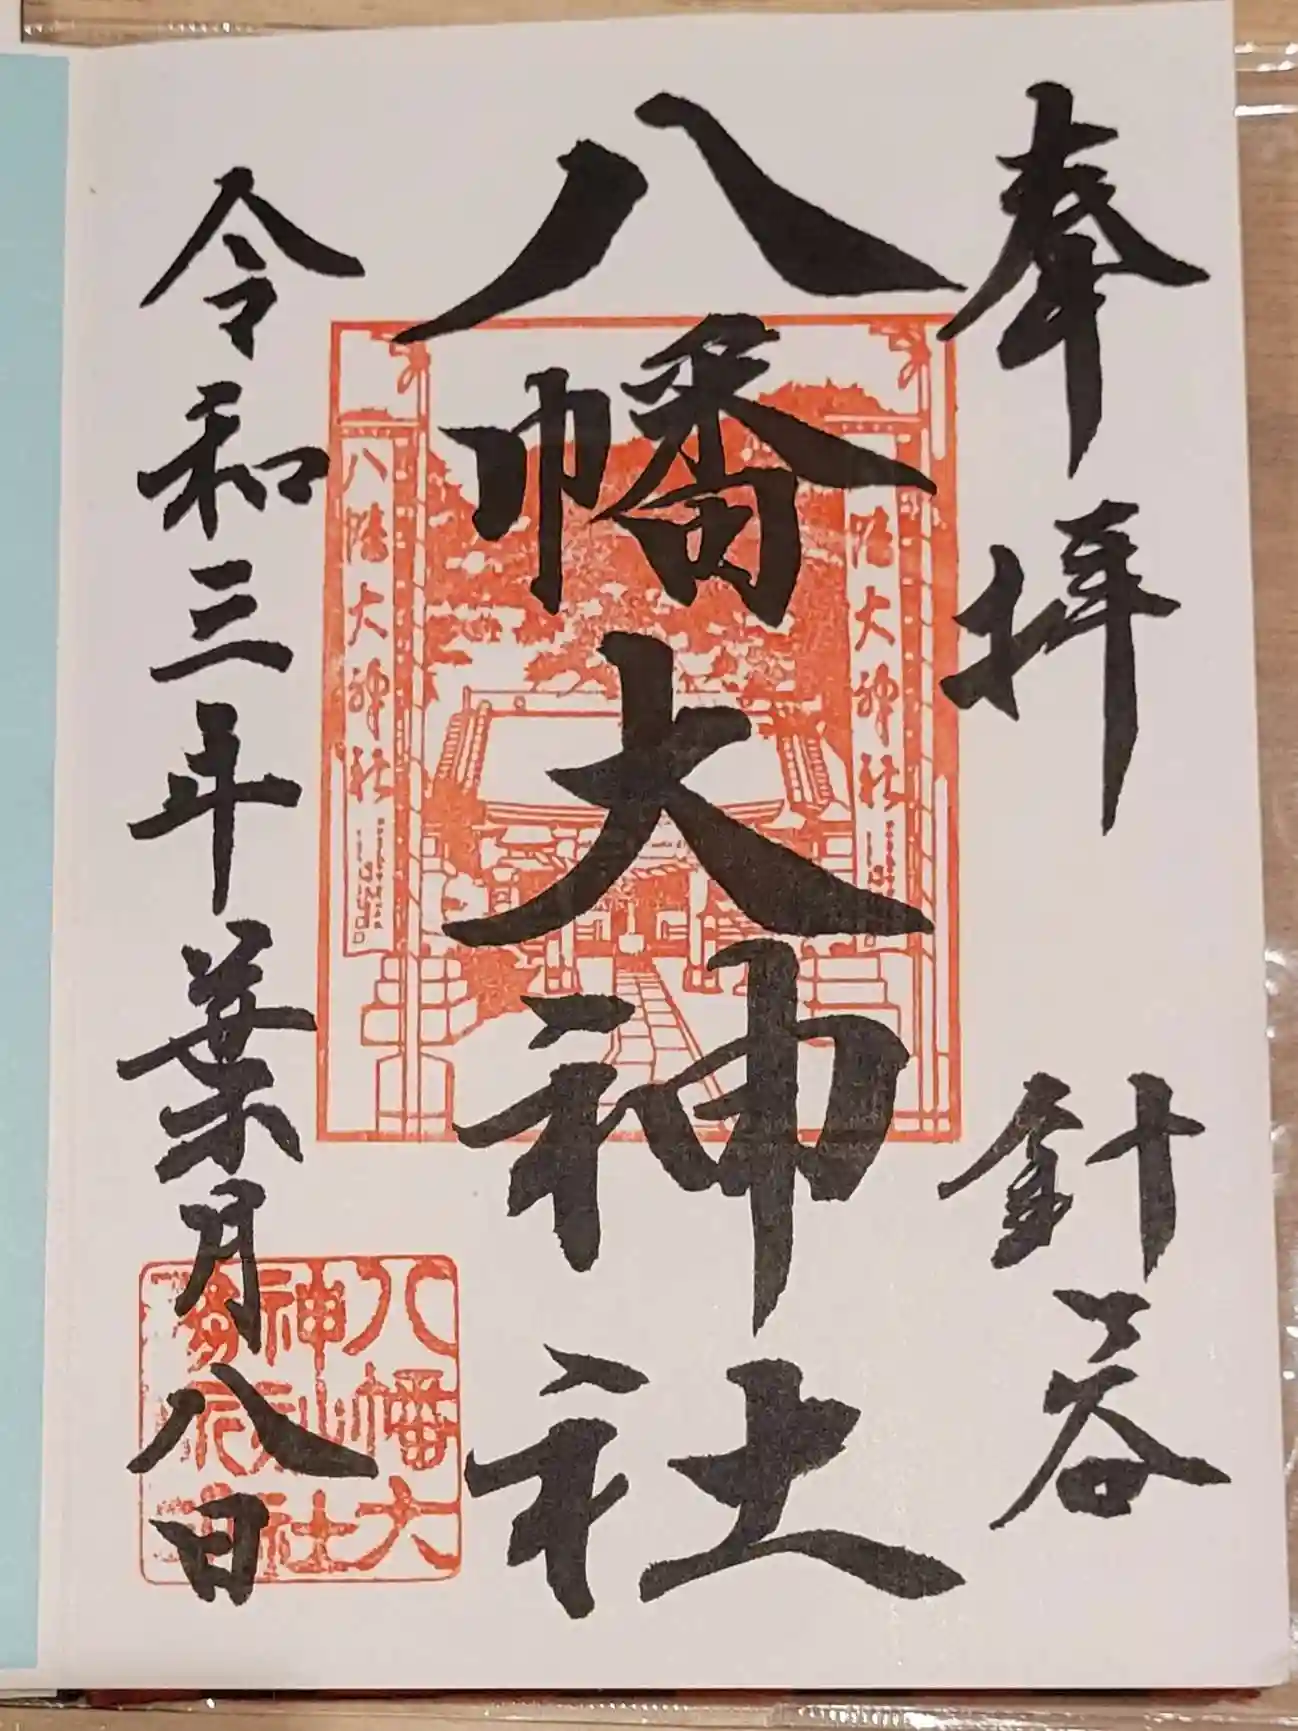 奉拝
針ヶ谷
八幡大神社
令和三年葉月八日
八幡大神社
八幡大神社
八幡大
神社